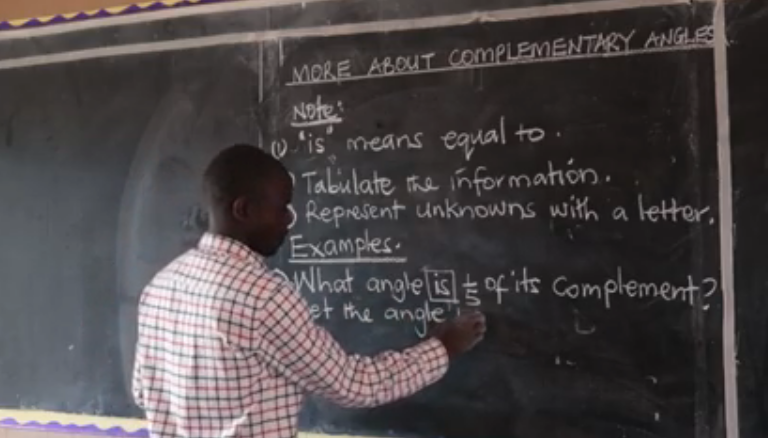 MORE ABOUT COMPLEMENTARY ANGLES
Note:
(1) "is" means equal to.
) Tabulate the information.
) Represent unknowns with a letter.
Examples.
) What angle is 1/5 of its complement?
et the angle